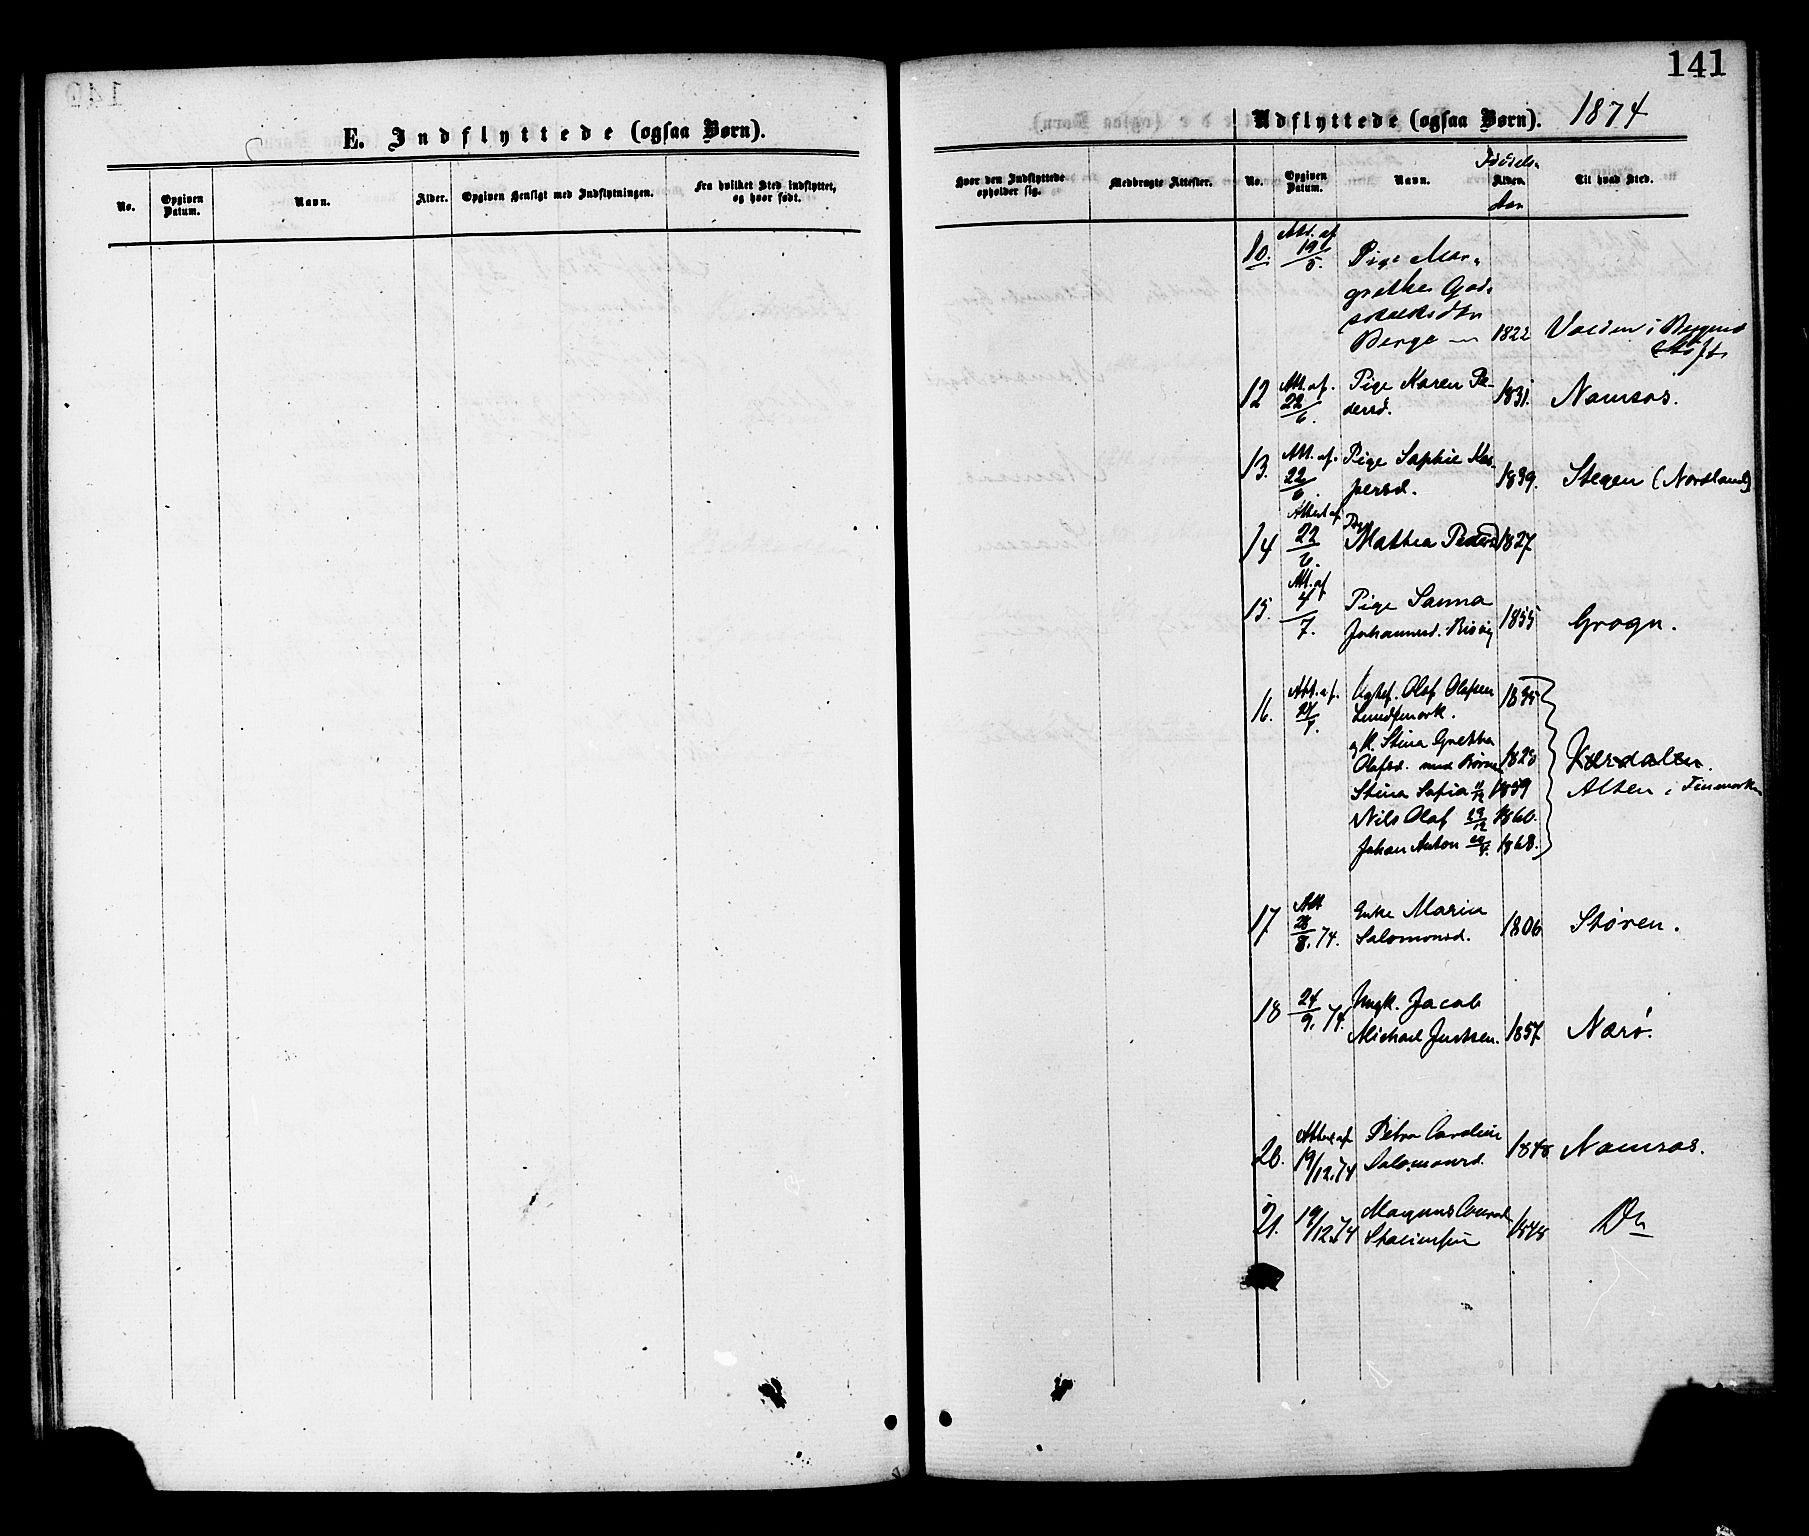 141
E. Indflyttede (ogsaa Børn).
No.
Opgiven Datum.
Navn.
Alder.
Opgiven Hensigt med Indflytningen.
Fra hvilket Sted indflyttet, og hvor født.
Udflyttede (ogsaa Børn). 1874
Hvor den Indflyttede opholder sig.
Medbragte Attester.
No.
Opgiven Datum.
Navn.
Fødsels
Alder.
Aar
Til hvad Sted.
10. Att. af 19/5. Pige Mar-
grethe
Berge 1822 Volden i Bergens
Stift
12 Att. af. 22/6. Pige Karen Pe-
dersd. 1831. Namsos.
13. Att. af. 22/6. Pige Sophie Kas-
persd. 1839. Stegen (Nordland)
14 Attest af 22/6. Pige Mathea Pedersd 1827
15. Att. af 4/7. Pige Sanna
Johannesd. 1855 Grogn.
16. Att. af. 27/7. Olaf Olafsen 1835
Lundmark.
og K. Stina Gretha
Olafsd. med Børn 1828 Værdalen.
Stina Sofia 11/12 1859 Alten i Finmarken
Nils Olaf 29/12 1860.
Johan Anton 1868.
17 Att 28/8. 74. Enke Maria
Salomonsd. 1806 Støren.
18 24/9. 74. Ungk. Jacob
Michael Justsen. 1857. Nærø.
20. Attest af 19/12.74 Petra Caroline
Salomonsd. 1848 Namsos.
21. 19/12.74 Magnus Conrad
1848 Do